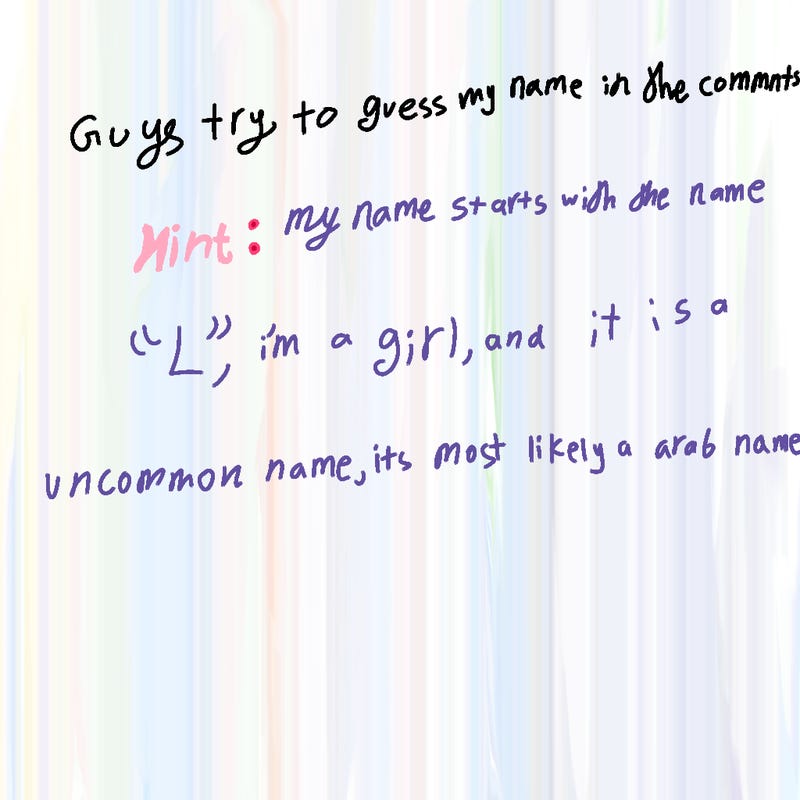 Guys try to guess my name in the commnts
Hint: my name starts with the name
"L", i'm a girl, and it is a
uncommon name, its most likely a arab name